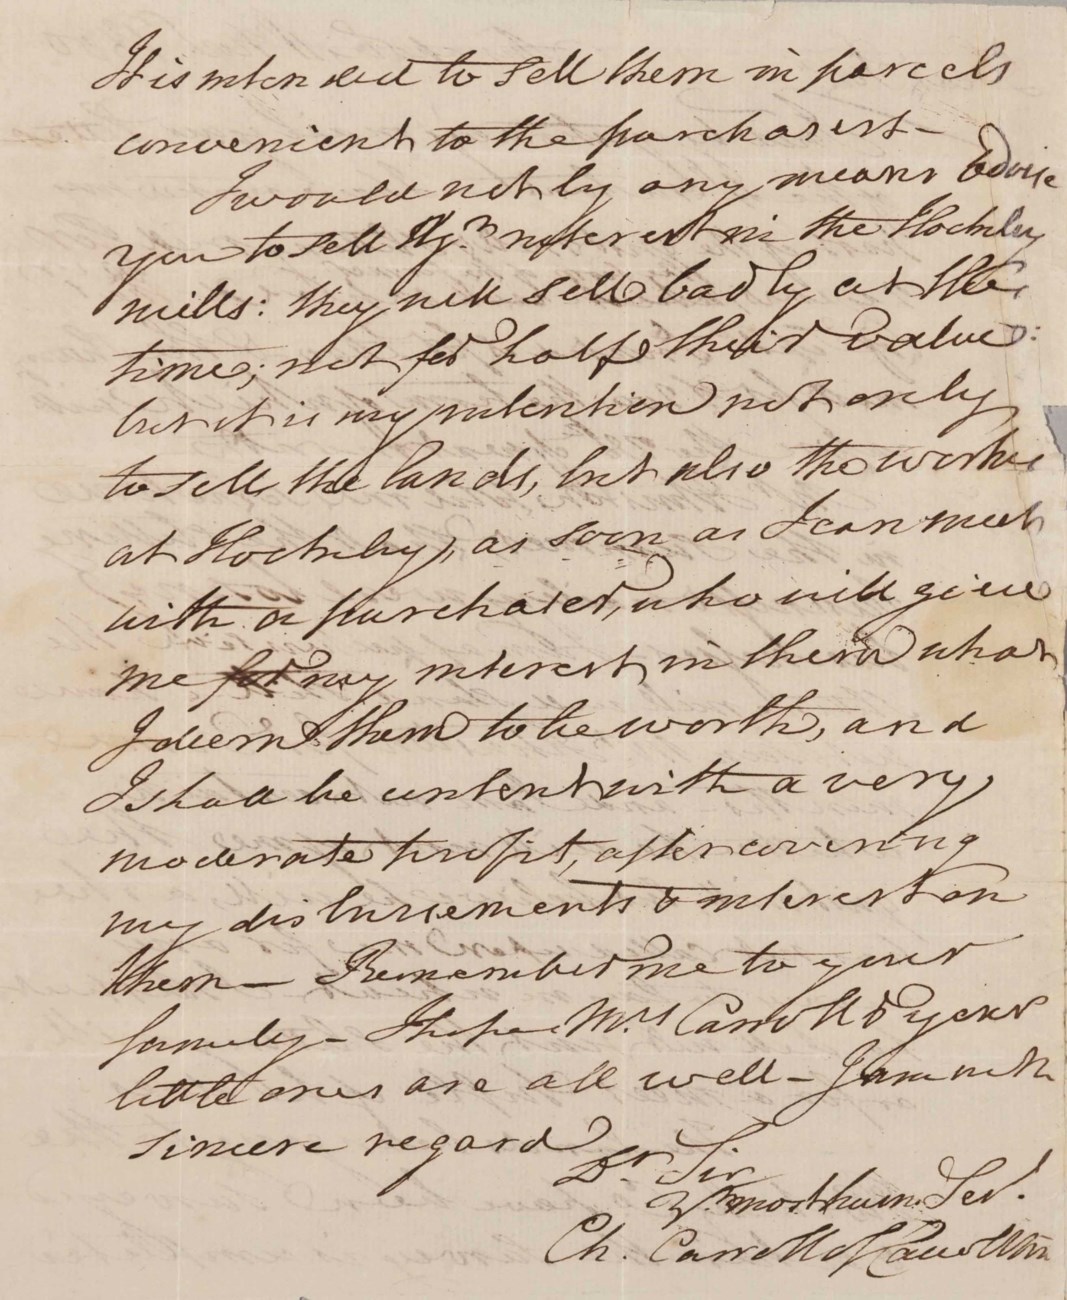 It is intended to sell them in parcels
convenient to the purchasers —
I would not by any means advise
you to sell yr. interest in the Hockley
mills: they will sell badly at this
time; not for half their value:
but it is my intention not only
to sell the lands, but also the works
at Hockley, as soon as I can meet
with a purchaser, who will give
me for my interest in them what
I deem them to be worth, and
I shall be content with a very
moderate profit, after covering
my disbursements & interest on
them — Remember me to your
family — I hope Mrs Carroll & yr
little ones are all well — I am with
sincere regard
Dr. Sir
Yr. most hum. Ser.
Ch. Carroll of Carrollton